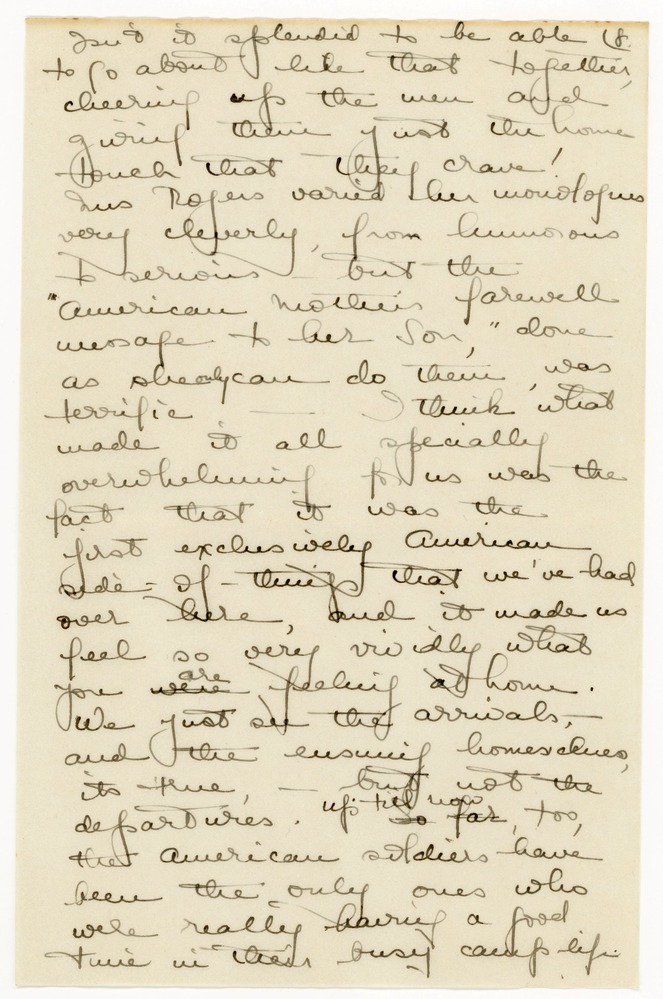 Isn't it splendid to be able 18.
to go about like that together,
cheering up the men and
giving them just the home
touch that they crave!
Miss Rogers varied her monologues
very cleverly, from humorous
to serious – but the
"American Mother's farewell
message to her Son," done
as she only can do them, was
terrific — I think what
made it all specially
overwhelming for us was the
fact that it was the
first exclusively American
side-of-things that we've had
over here, and it made us
feel so very vividly what
you were are feeling at home.
We just see the arrivals,–
and the ensuing homesickness,
its true, – but not the
departures. So far up till now, too,
the American soldiers have
been the only ones who
were really having a good
time in their busy camp life